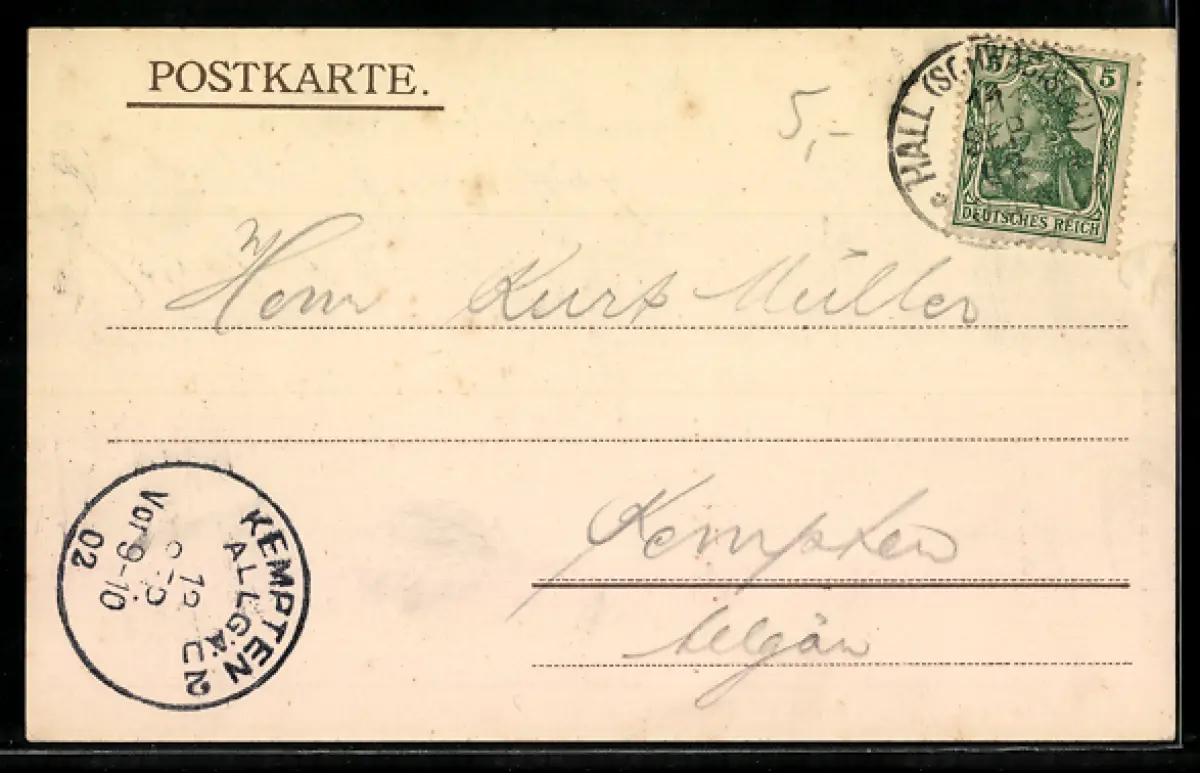 POSTKARTE.
5,-
HALL (SCHWÄB.)
5
DEUTSCHES REICH
Herrn Kurt Müller
Kempten
Allgäu
KEMPTEN 2
ALLGÄU
12
SEP
Vor 9-10
02